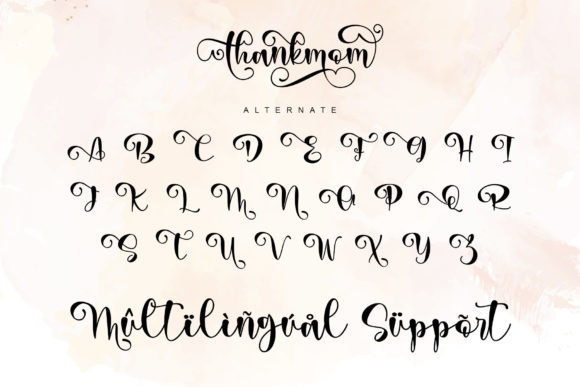 thankmom
ALTERNATE
A B C D E F G H I
J K L M N O P Q R
S T U V W X Y Z
Mûltïlìñgúål Süppõrt